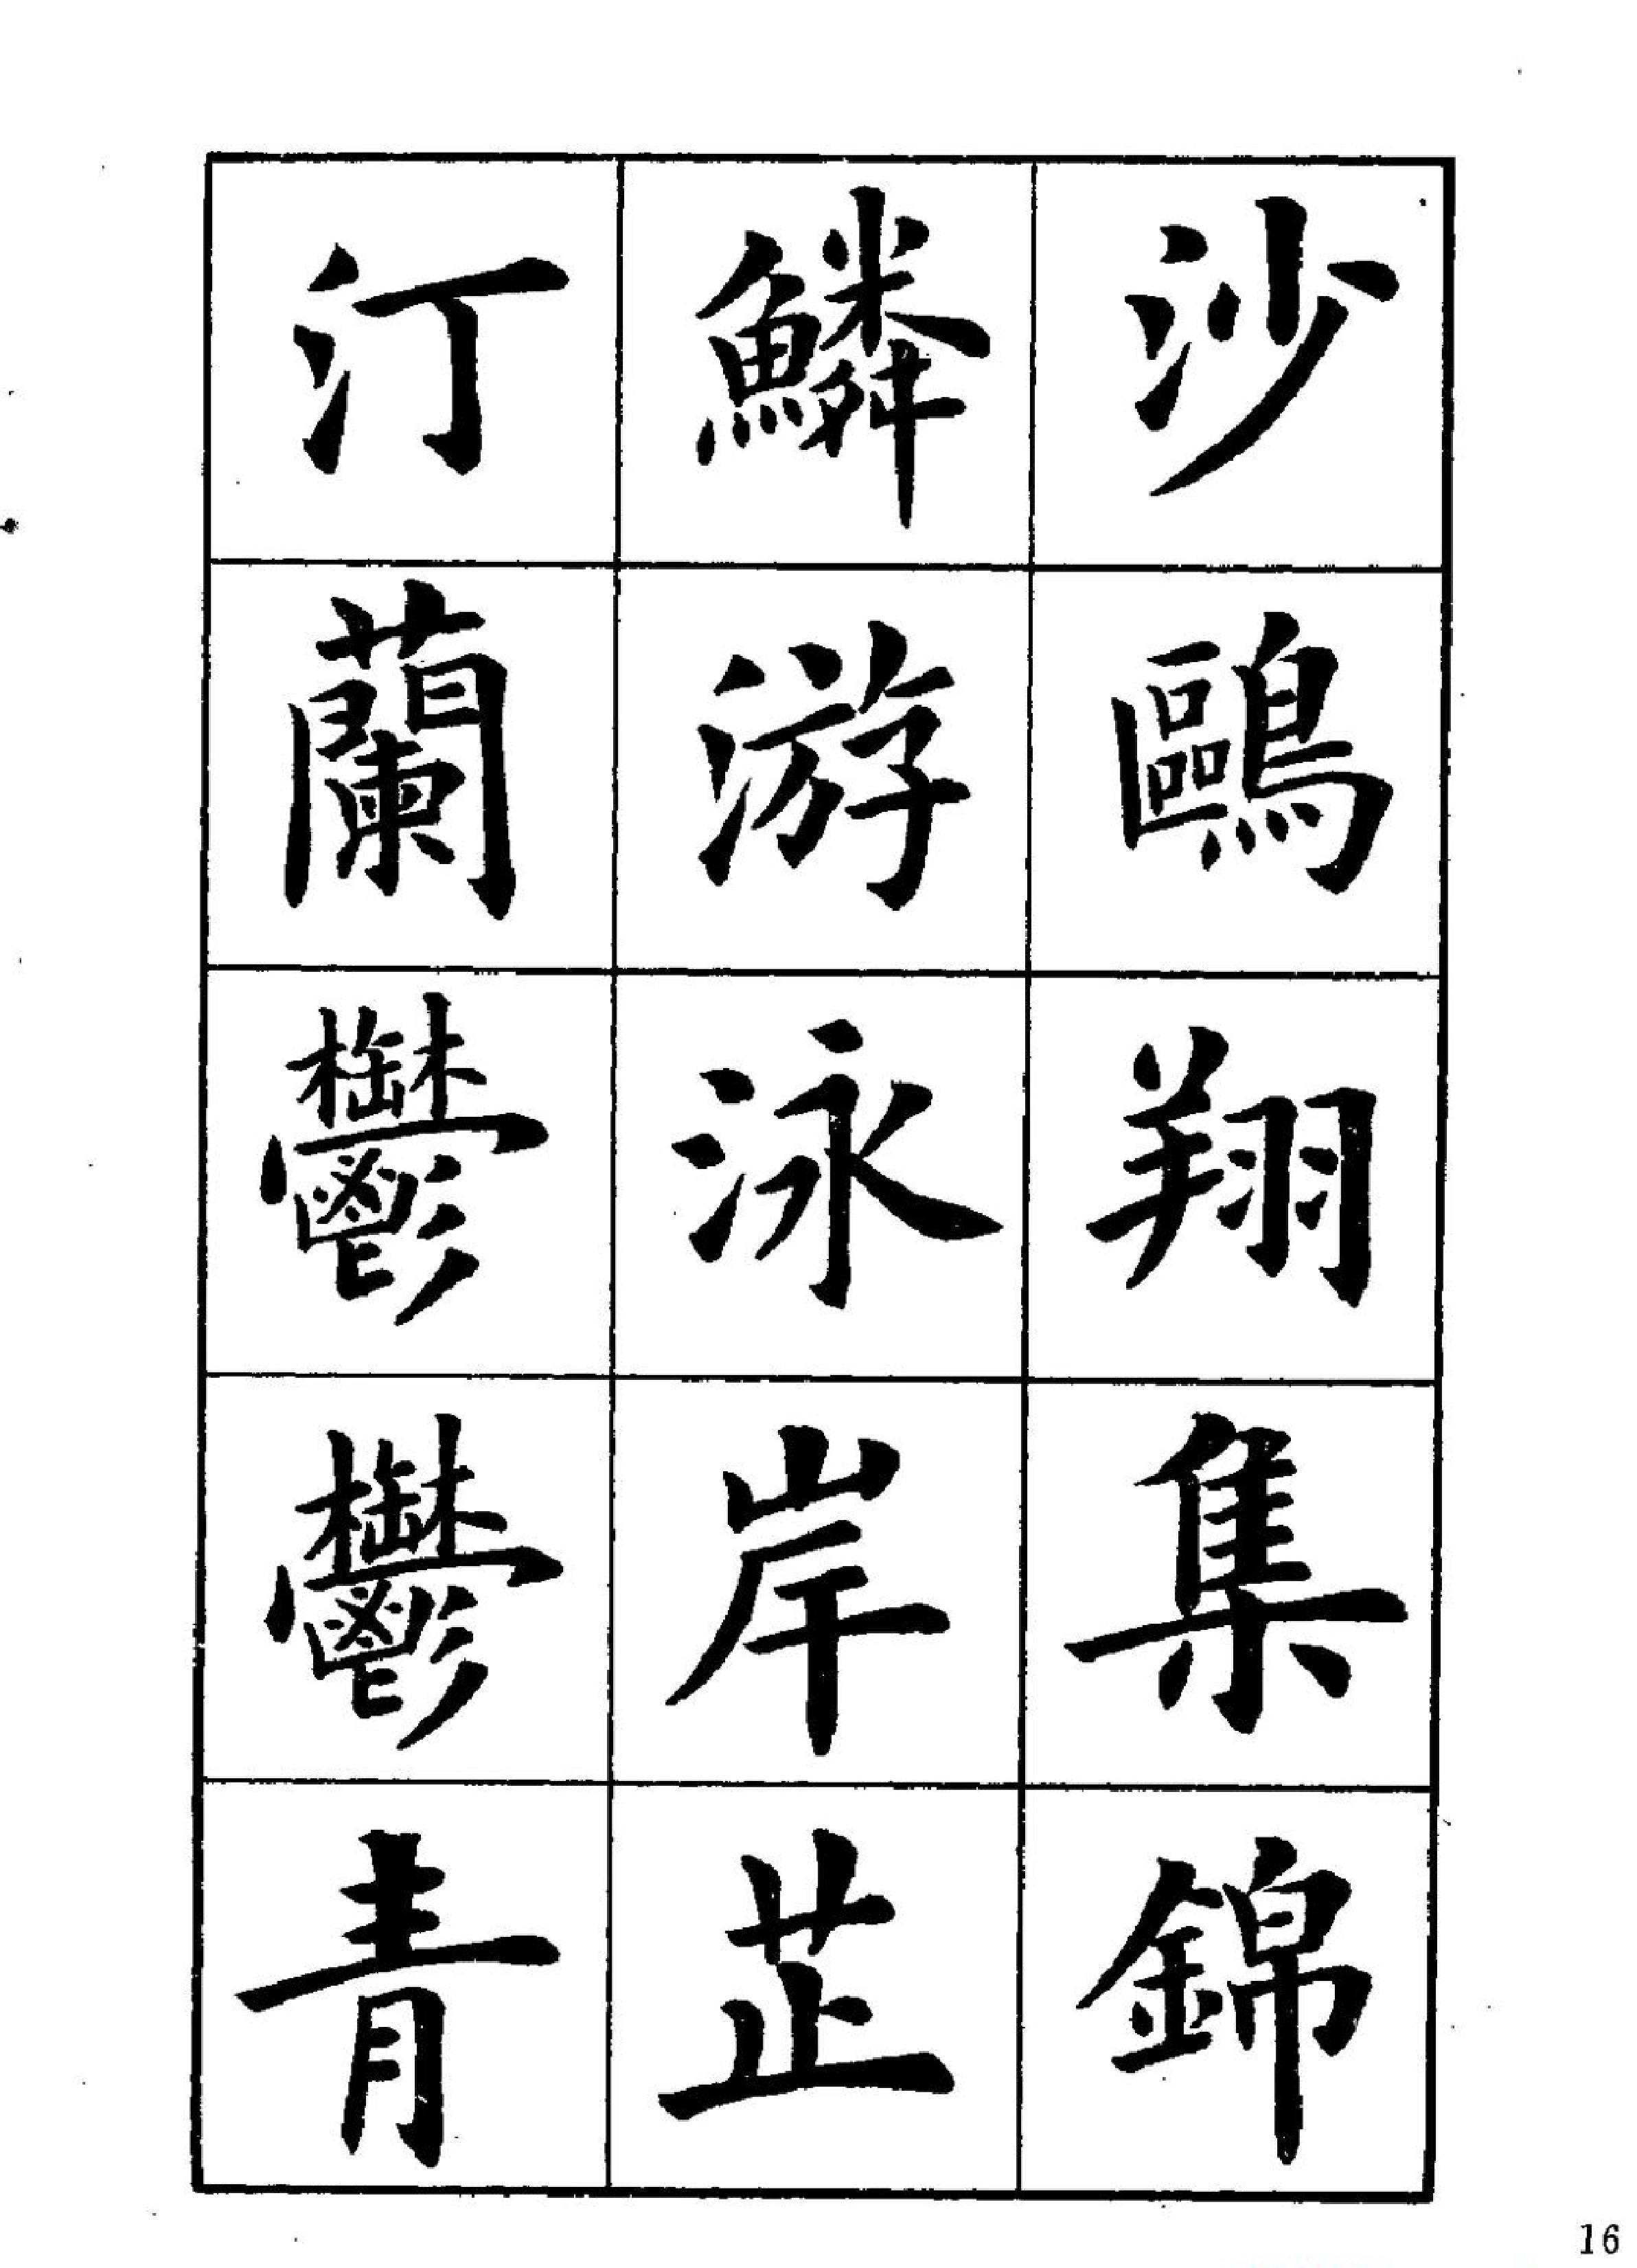 沙鷗翔集錦
鱗游泳岸芷
汀蘭鬱鬱青
16